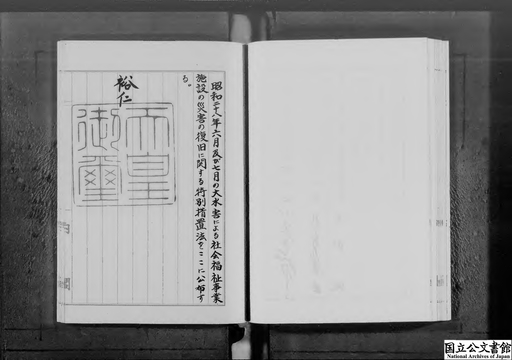 昭和二十八年六月及び七月の大水害による社会福祉事業
施設の災害の復旧に関する特別措置法をここに公布す
る。
裕仁
天皇
御璽
国立公文書館
National Archives of Japan